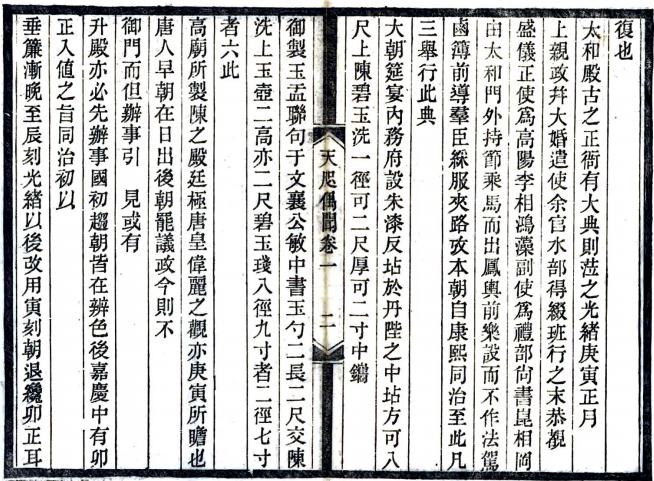 復也
太和殿古之正衙有大典則蒞之光緖庚寅正月
上親政幷大婚遣使余官水部得綴班行之末恭覩
盛儀正使爲高陽李相鴻藻副使爲禮部尙書崑相岡
由太和門外持節乘馬而出鳳輿前樂設而不作法駕
鹵簿前導羣臣綵服夾路攷本朝自康熙同治至此凡
三舉行此典
大朝筵宴內務府設朱漆反坫於丹陛之中坫方可八
尺上陳碧玉洗一徑可二尺厚可二寸中鐫
天咫偶聞卷一 二
御製玉盂聯句于文襄公敏中書玉勺二長二尺交陳
洗上玉壺二高亦二尺碧玉琖八徑九寸者二徑七寸
者六此
高廟所製陳之殿廷極唐皇偉麗之觀亦庚寅所瞻也
唐人早朝在日出後朝罷議政今則不
御門而但辦事引 見或有
升殿亦必先辦事國初趨朝皆在辨色後嘉慶中有卯
正入値之旨同治初以
垂簾漸晚至辰刻光緖以後改用寅刻朝退纔卯正耳